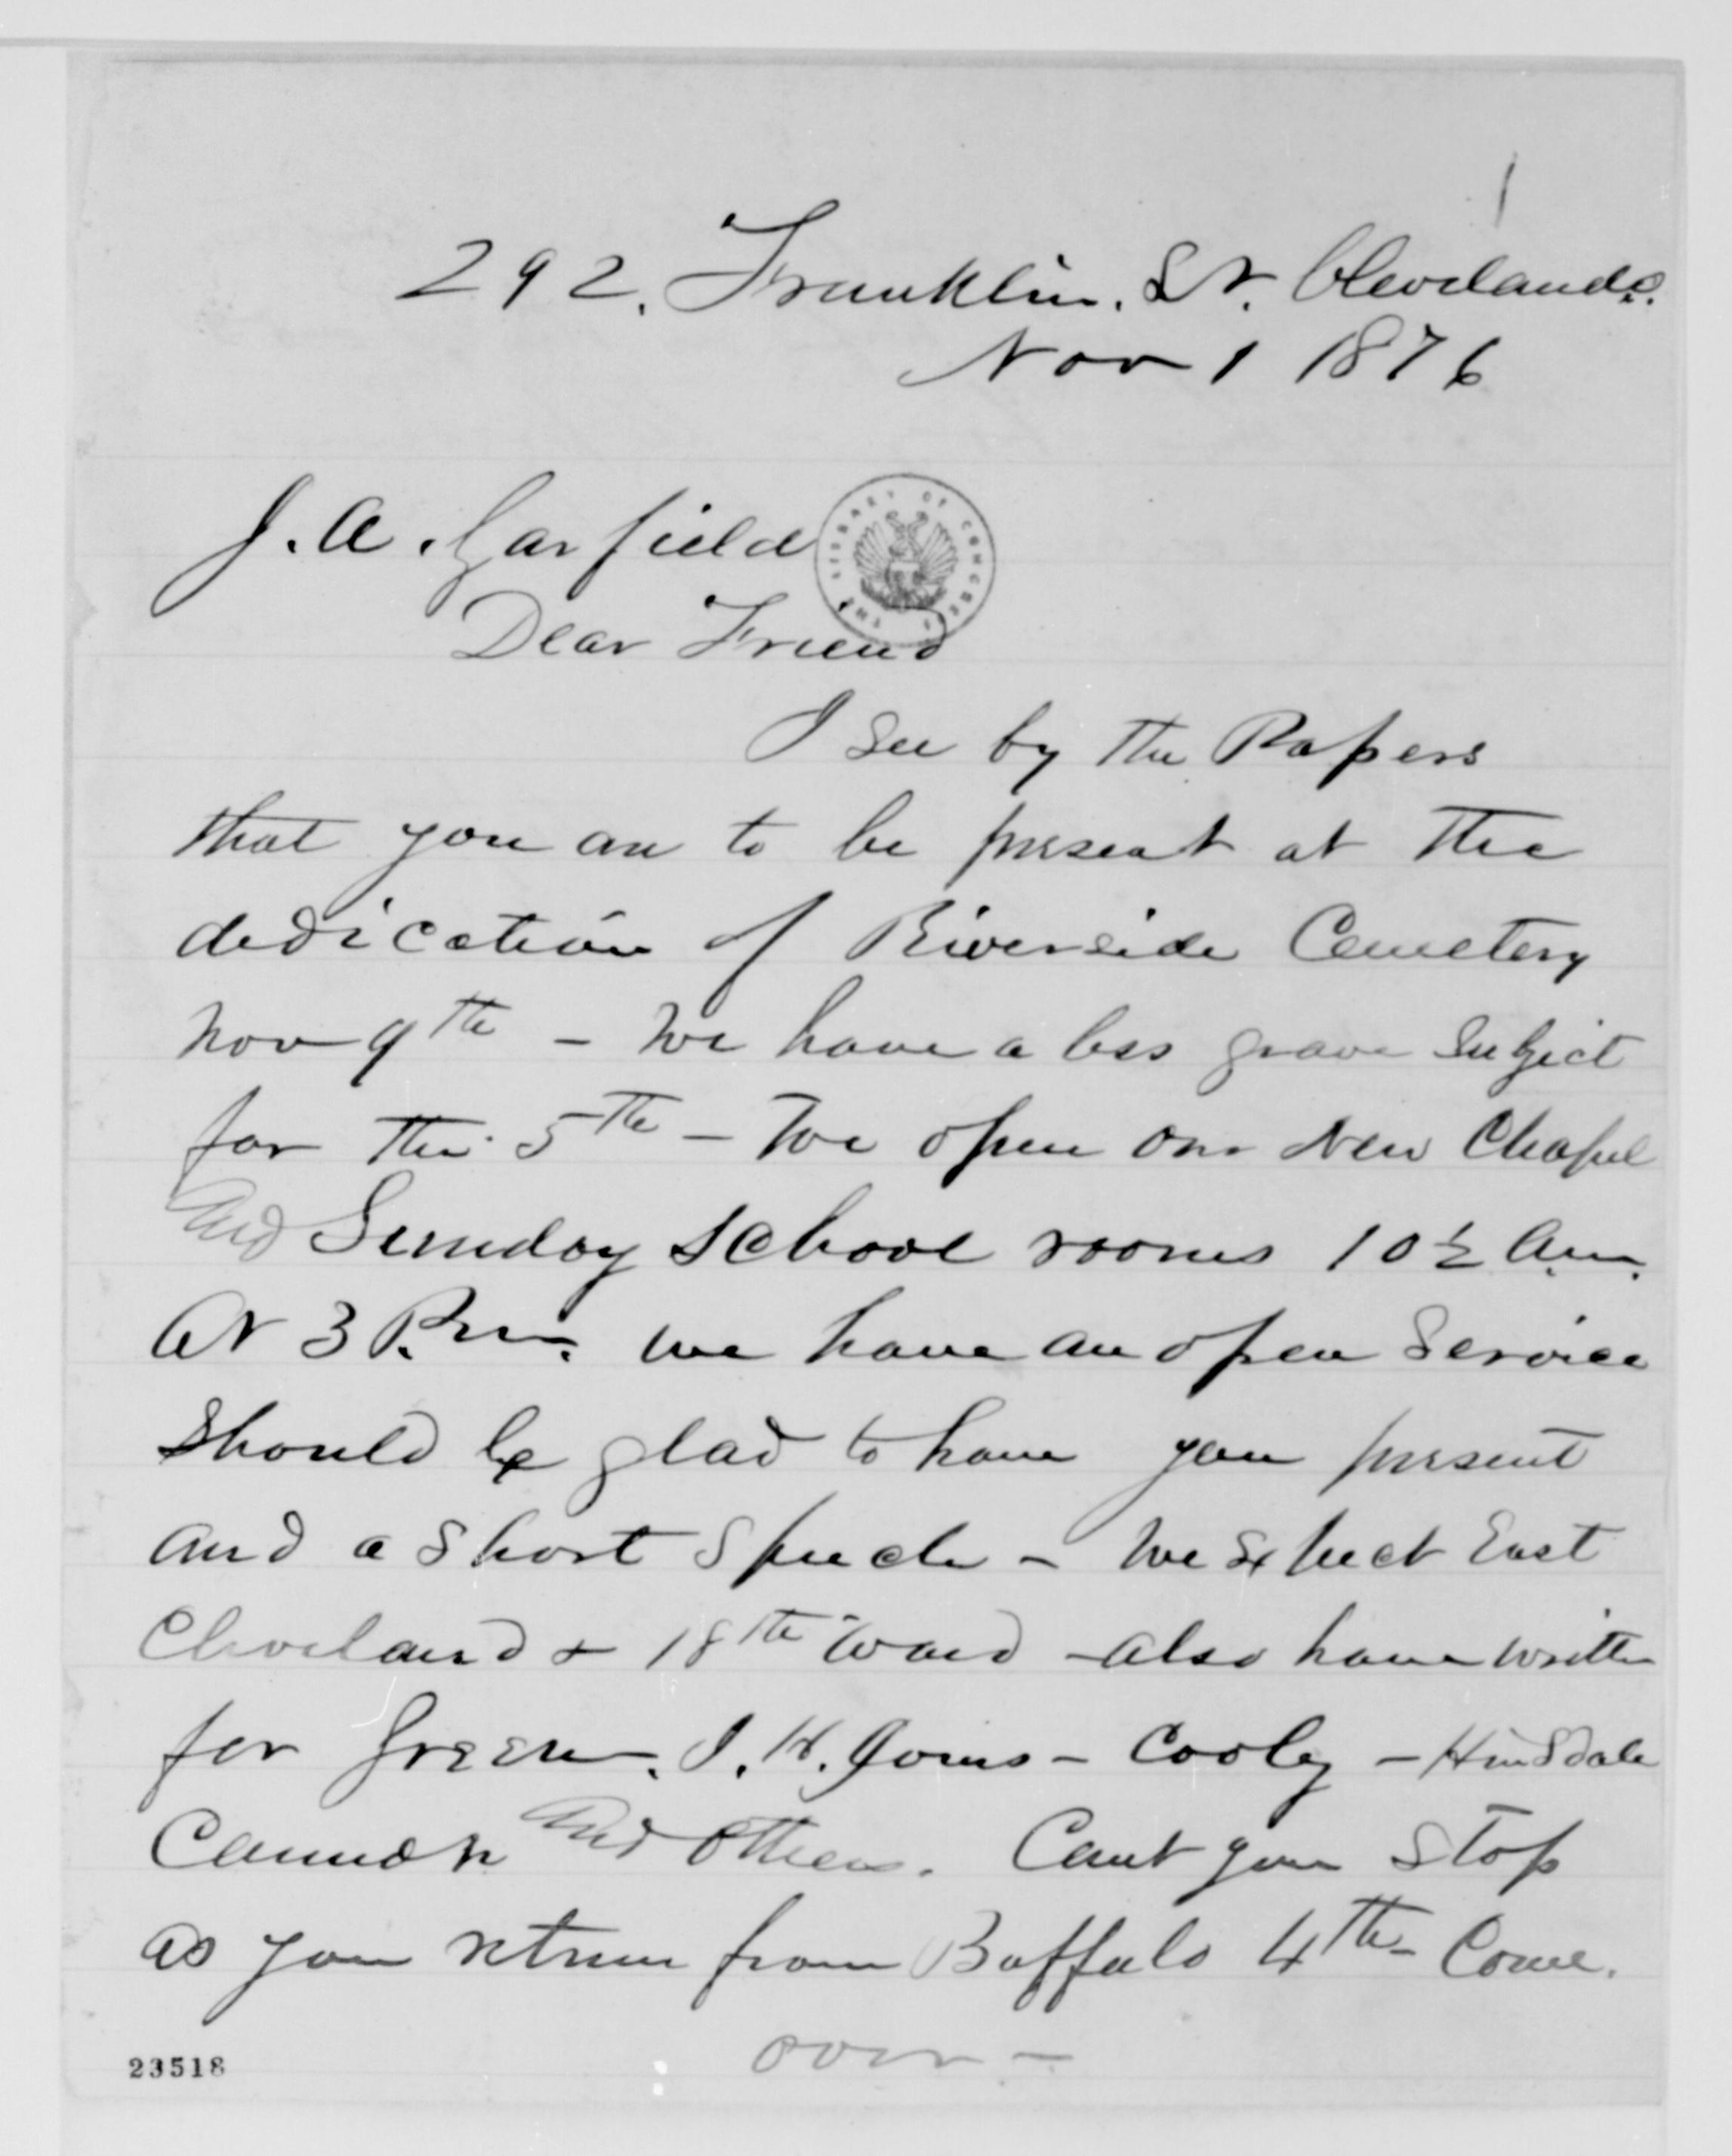 1
292. Franklin. St. Cleveland O.
Nov 1 1876
J. A. Garfield
THE LIBRARY OF CONGRESS
Dear Friend
I see by the Papers
that you are to be present at the
dedication of Riverside Cemetery
Nov 9th - We have a less grave Subject
for the 5th - We open our New Chapel
and Sunday School rooms 10½ a.m.
At 3 P.m. we have an open Service
Should be glad to have you present
and a Short Speech - We Expect East
Cleveland & 18th Ward - also have written
for Green. J. H. Jones - Cooley - Hinsdale
Cannon and others. Cant you Stop
as you return from Buffalo 4th - Come.
over -
23518